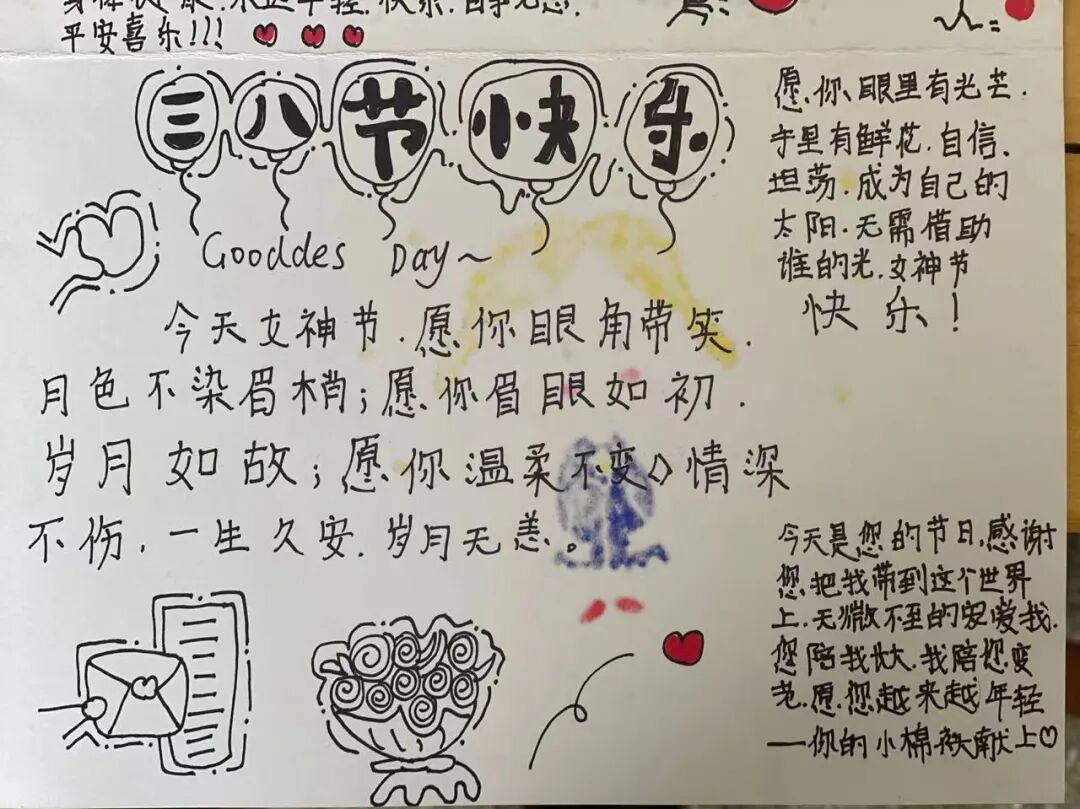 身体健康.永远年轻.快乐.百事无忌.
平安喜乐!!!
三八节快乐
Gooddes Day~
今天女神节.愿你眼角带笑.
月色不染眉梢;愿你眉眼如初.
岁月如故;愿你温柔不变、情深
不伤.一生久安.岁月无恙。
愿.你.眼里有光芒.
手里有鲜花.自信.
坦荡.成为自己的
太阳.无需借助
谁的光.女神节
快乐!
今天是您的节日,感谢
您.把我带到这个世界
上.无微不至的宠爱我.
您陪我长大.我陪您变
老.愿.您越来越年轻
——你的小棉袄献上♡